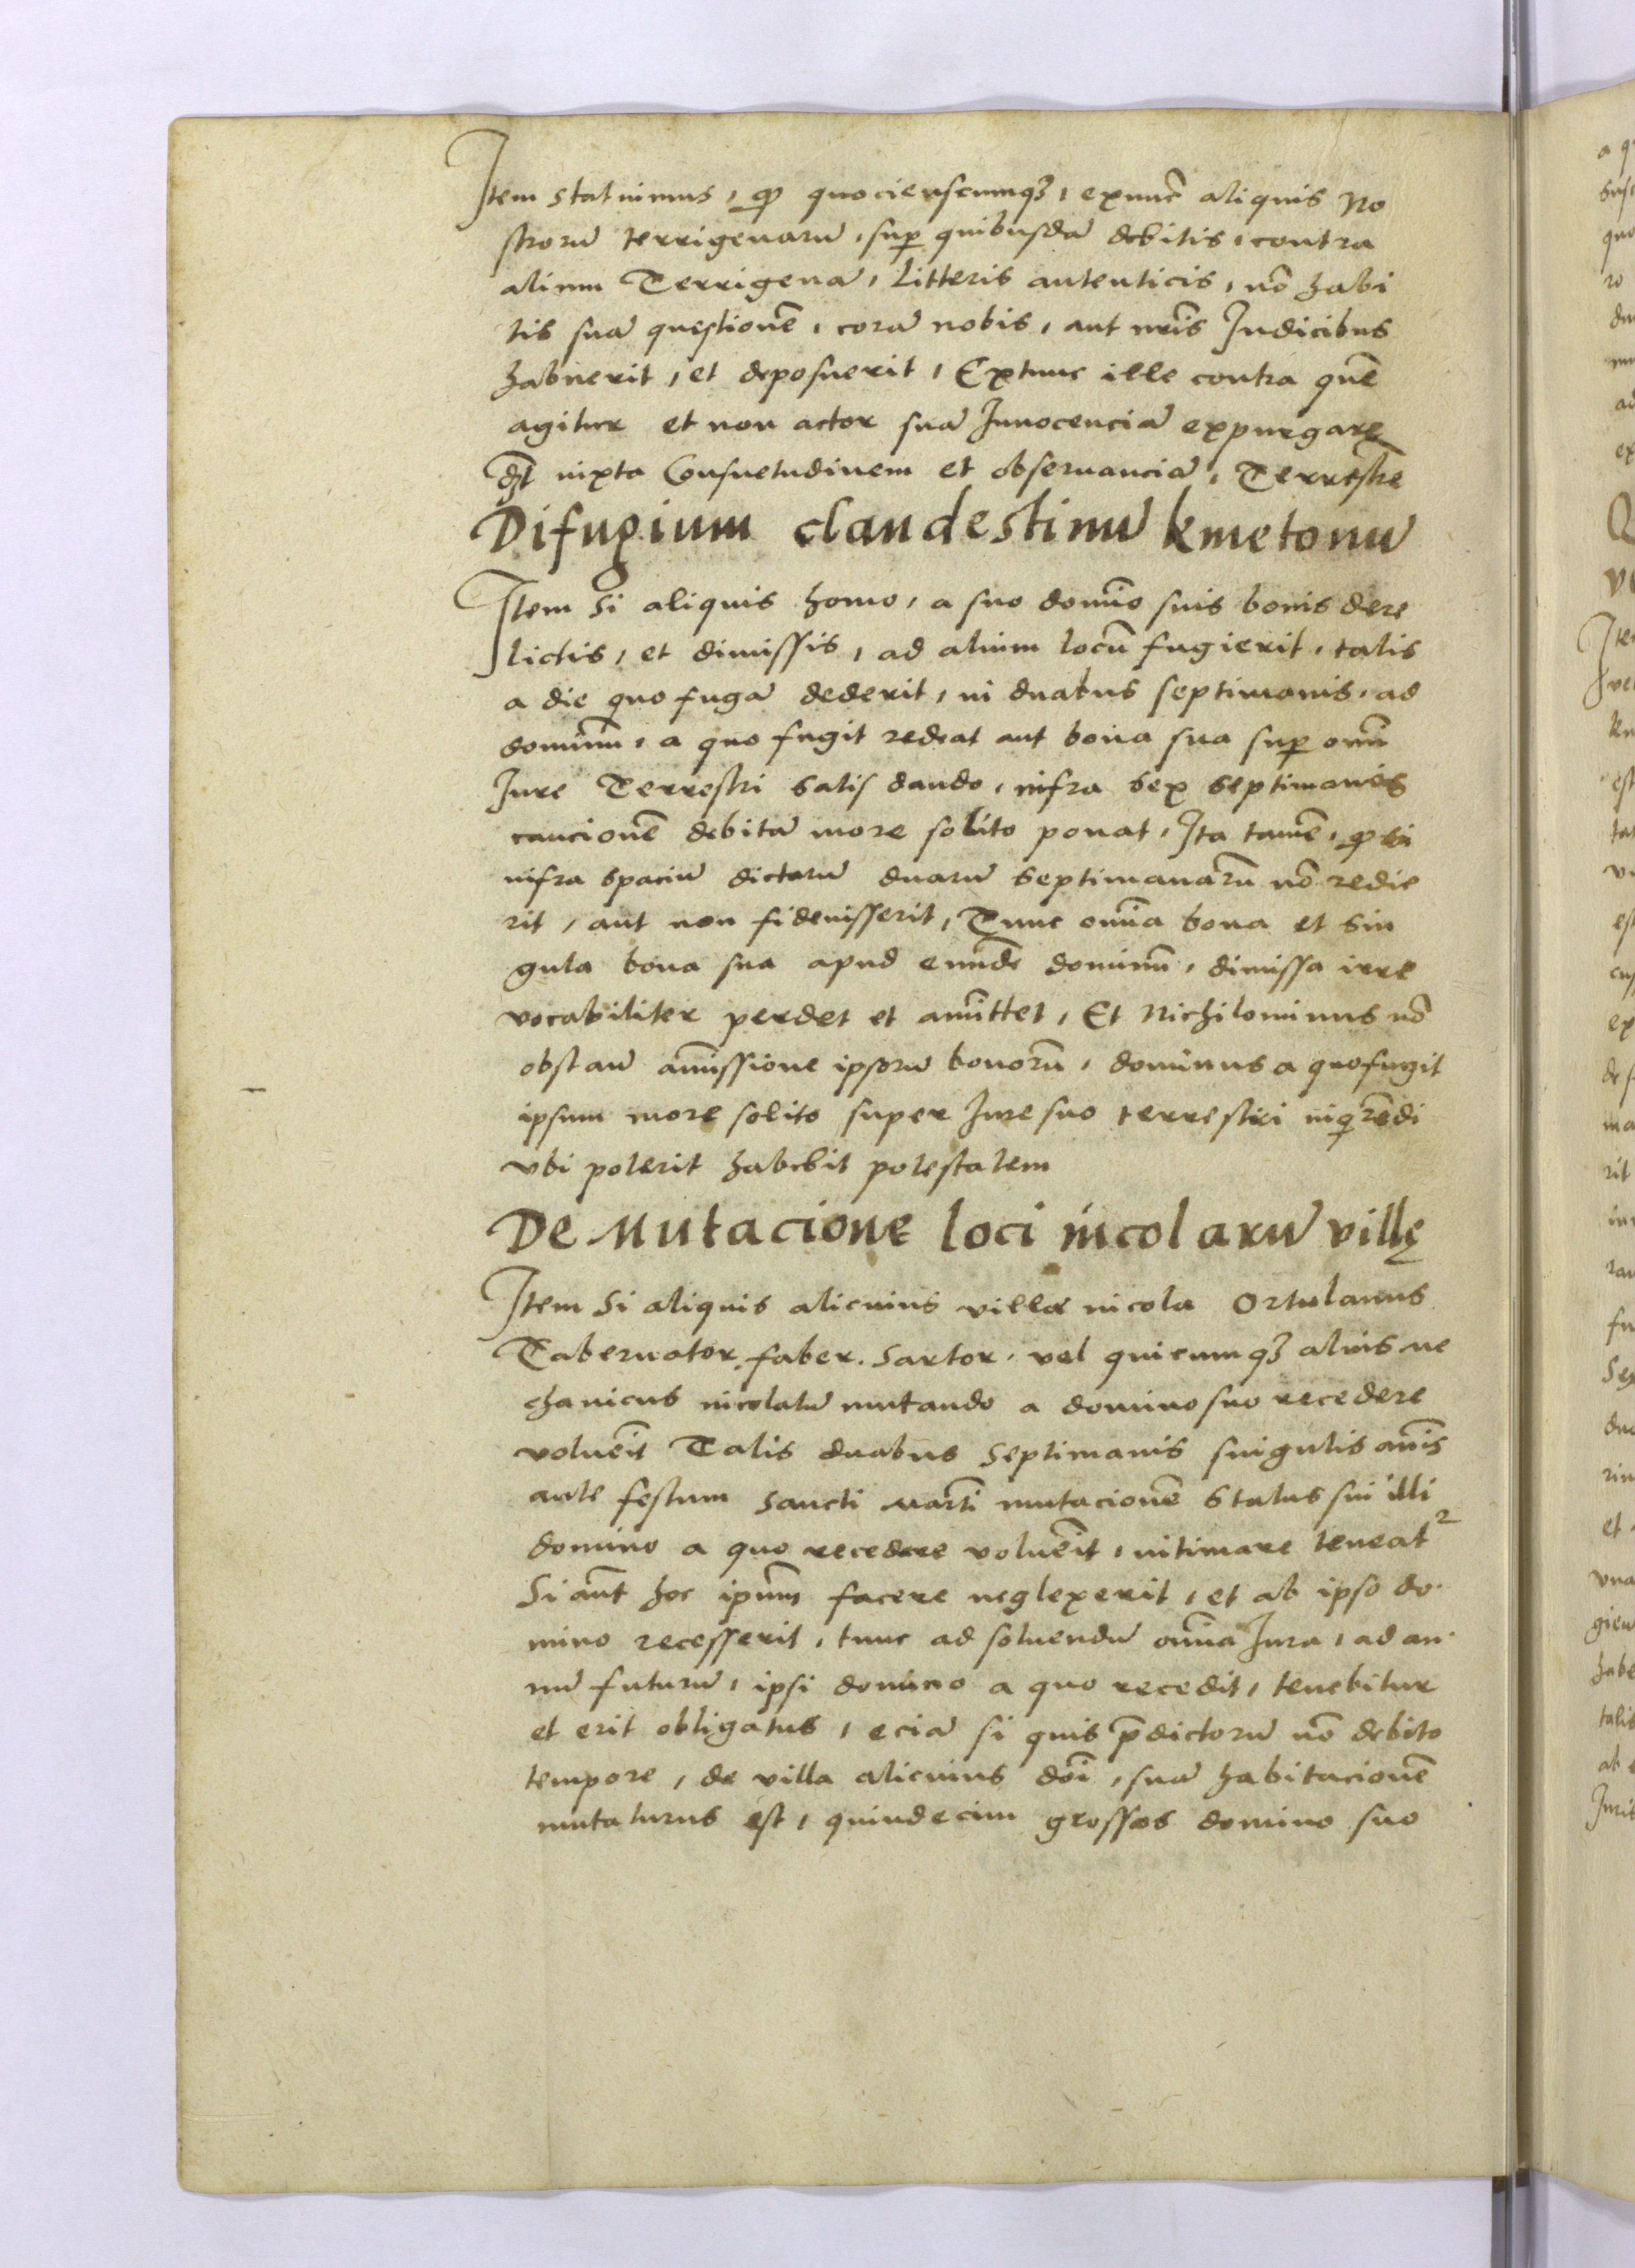 Item statuimus, ꝙ quocienscumqꝫ, exnunc aliquis No
strorū terrigenarū, suꝑ quibusdā debitis, contra
alium Terrigenā, Litteris autenticis, nō habi
tis suā questionē, corā nobis, aut nr̄is Iudicibus
habuerit, et deposuerit, Extunc ille contra quē
agitur et non actor suā Innocenciā expurgare
dꝫt iuxta Consuetudinem et obseruanciā, Terrestrē
Difugium clandestinū kmetonū
Item Si aliquis homo, a suo domīo suis bonis dere
lictis, et dimissis, ad alium locū fugierit, talis
a die quo fugā dederit, in duabus septimanis, ad
dominū, a quo fugit redeat aut bona sua suꝑ omī
Iure Terrestri satis dando, infra sex septimanis
caucionē debitā more solito ponat, Ita tamē, ꝙ si
infra spaciū dictarū duarū septimanarū nō redie
rit, aut non fideiusserit, Tunc om̄ia bona et sin
gula bona sua apud eundē dominū, dimissa irre
vocabiliter perdet et amittet, Et Nichilominus nō
obstan̄ amissione ipsorū bonorū, dominus a quo fugit
ipsum more solito super Iure suo terrestri inqͥrēdi
vbi poterit habebit potestatem
De Mutacione loci incolarū villę
Item Si aliquis alicuius villae incola Ortulanus
Tabernator, faber. Sartor. vel quicumqꝫ alius me
chanicus incolatū mutando a domino suo recedere
voluēit Talis duabus Septimanis singulis an̄is
ante festum Sancti Martī mutacionē Status sui illi
domino a quo recedere voluēit, intimare teneat²
Si aūt hoc ipsum facere neglexerit, et ab ipso do
mino recesserit, tunc ad soluendū om̄ia Iura, ad an
nū futurū, ipsi domino a quo recedit, tenebitur
et erit obligatus, eciā si quis p̄dictorū nō debito
tempore, de villa alicuius dn̄i, suā habitacionē
mutaturus est, quindecim grossos domino suo